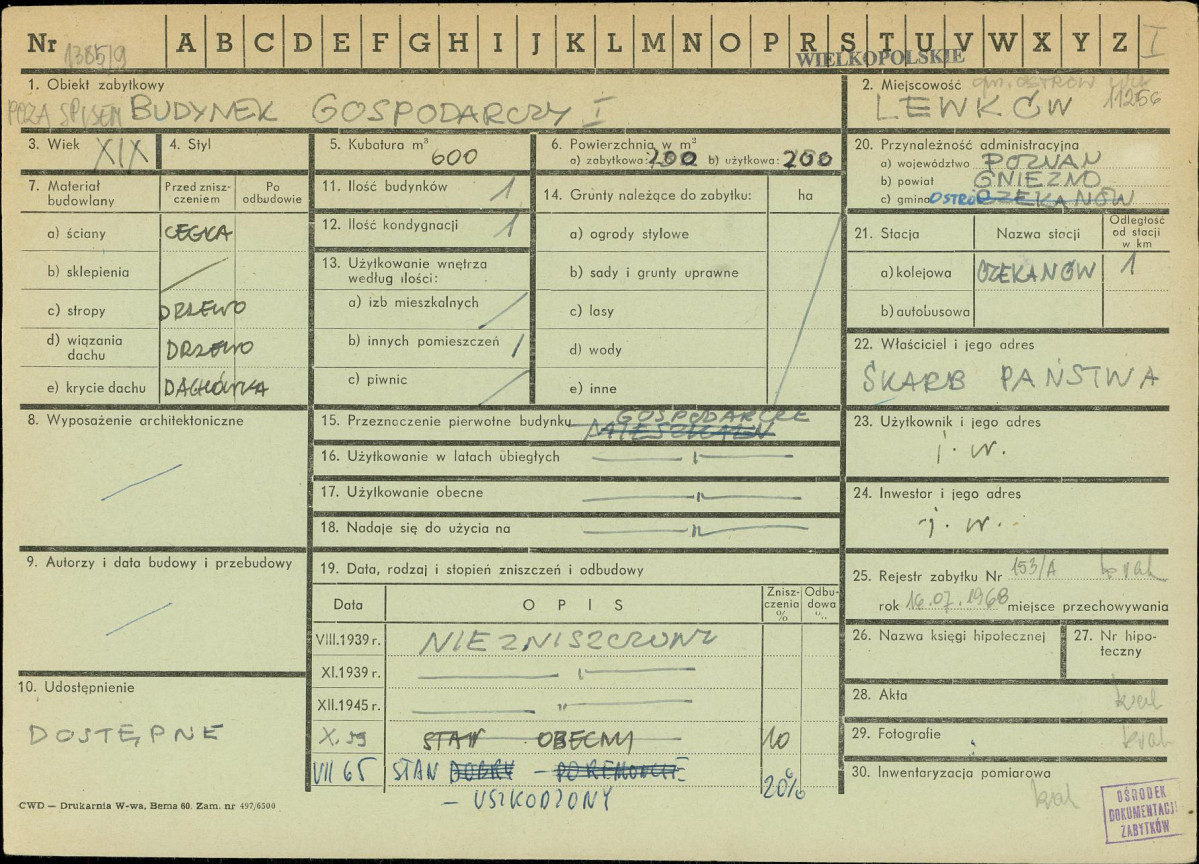 Nr 1385/9 A B C D E F G H I J K L M N O P R S T U V W X Y Z I
WIELKOPOLSKIE
1. Obiekt zabytkowy
POZA SPISEM BUDYNEK GOSPODARCZY I
2. Miejscowość gm. OSTRÓW
LEWKÓW 11256
3. Wiek XIX
4. Styl
5. Kubatura m³ 600
6. Powierzchnia w m²
a) zabytkowa: 200 b) użytkowa: 200
20. Przynależność administracyjna
a) województwo POZNAŃ
b) powiat GNIEZNO
c) gmina OSTRÓ CZEKANÓW
7. Materiał budowlany
Przed znisz-czeniem
Po odbudowie
a) ściany CEGŁA
b) sklepienia /
c) stropy DRZEWO
d) wiązania dachu DRZEWO
e) krycie dachu DACHÓWKA
11. Ilość budynków 1
12. Ilość kondygnacji 1
13. Użytkowanie wnętrza według ilości:
a) izb mieszkalnych /
b) innych pomieszczeń 1
c) piwnic /
14. Grunty należące do zabytku: ha
a) ogrody stylowe
b) sady i grunty uprawne
c) lasy
d) wody
e) inne
21. Stacja
Nazwa stacji
Odległość od stacji w km
a) kolejowa CZEKANÓW 1
b) autobusowa
22. Właściciel i jego adres
SKARB PAŃSTWA
8. Wyposażenie architektoniczne
/
15. Przeznoczenie pierwotne budynku GOSPODARCZE
16. Użytkowanie w latach ubiegłych — " —
17. Użytkowanie obecne — " —
18. Nadaje się do użycia na — " —
23. Użytkownik i jego adres
j. w.
24. Inwestor i jego adres
j. w.
9. Autorzy i data budowy i przebudowy
/
19. Data, rodzaj i stopień zniszczeń i odbudowy
Data
OPIS
Znisz-czenia %
Odbu-dowa %
VIII.1939 r. NIEZNISZCZONY
XI.1939 r. — " —
XII.1945 r. — " —
X. 59 STAN OBECNY 10
VII 65 STAN DOBRY – PO REMONCIE 20%
– USZKODZONY
25. Rejestr zabytku Nr 153/A brak
rok 16.07.1968 miejsce przechowywania
26. Nazwa księgi hipotecznej
27. Nr hipo-teczny
10. Udostępnienie
DOSTĘPNE
28. Akta brak
29. Fotografie brak
30. Inwentaryzacja pomiarowa brak
OŚRODEK
DOKUMENTACJI
ZABYTKÓW
CWD — Drukarnia W-wa, Bema 60. Zam. nr 497/6500